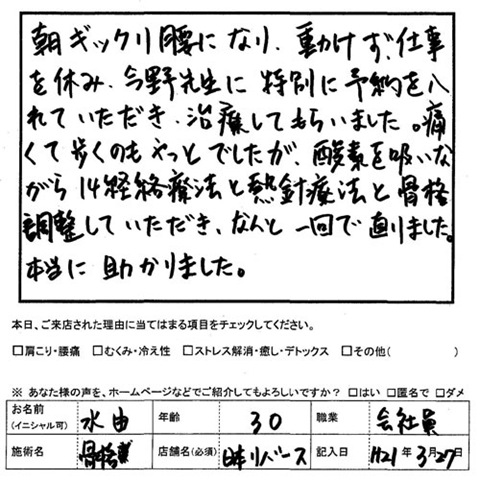 朝ギックリ腰になり、動けず、仕事
を休み、今野先生に特別に予約を入
れていただき、治療してもらいました。痛
くて歩くのもやっとでしたが、酸素を吸いな
がら14経絡療法と熱針療法と骨格
調整していただき、なんと一回で直りました。
本当に助かりました。
本日、ご来店された理由に当てはまる項目をチェックしてください。
□肩こり・腰痛 □むくみ・冷え性 □ストレス解消・癒し・デトックス □その他( )
※ あなた様の声を、ホームページなどでご紹介してもよろしいですか? □はい □匿名で □ダメ
お名前(イニシャル可) 水由 年齢 30 職業 会社員
施術名 骨格 店舗名(必須) 日本リバース 記入日 H21年3月27日